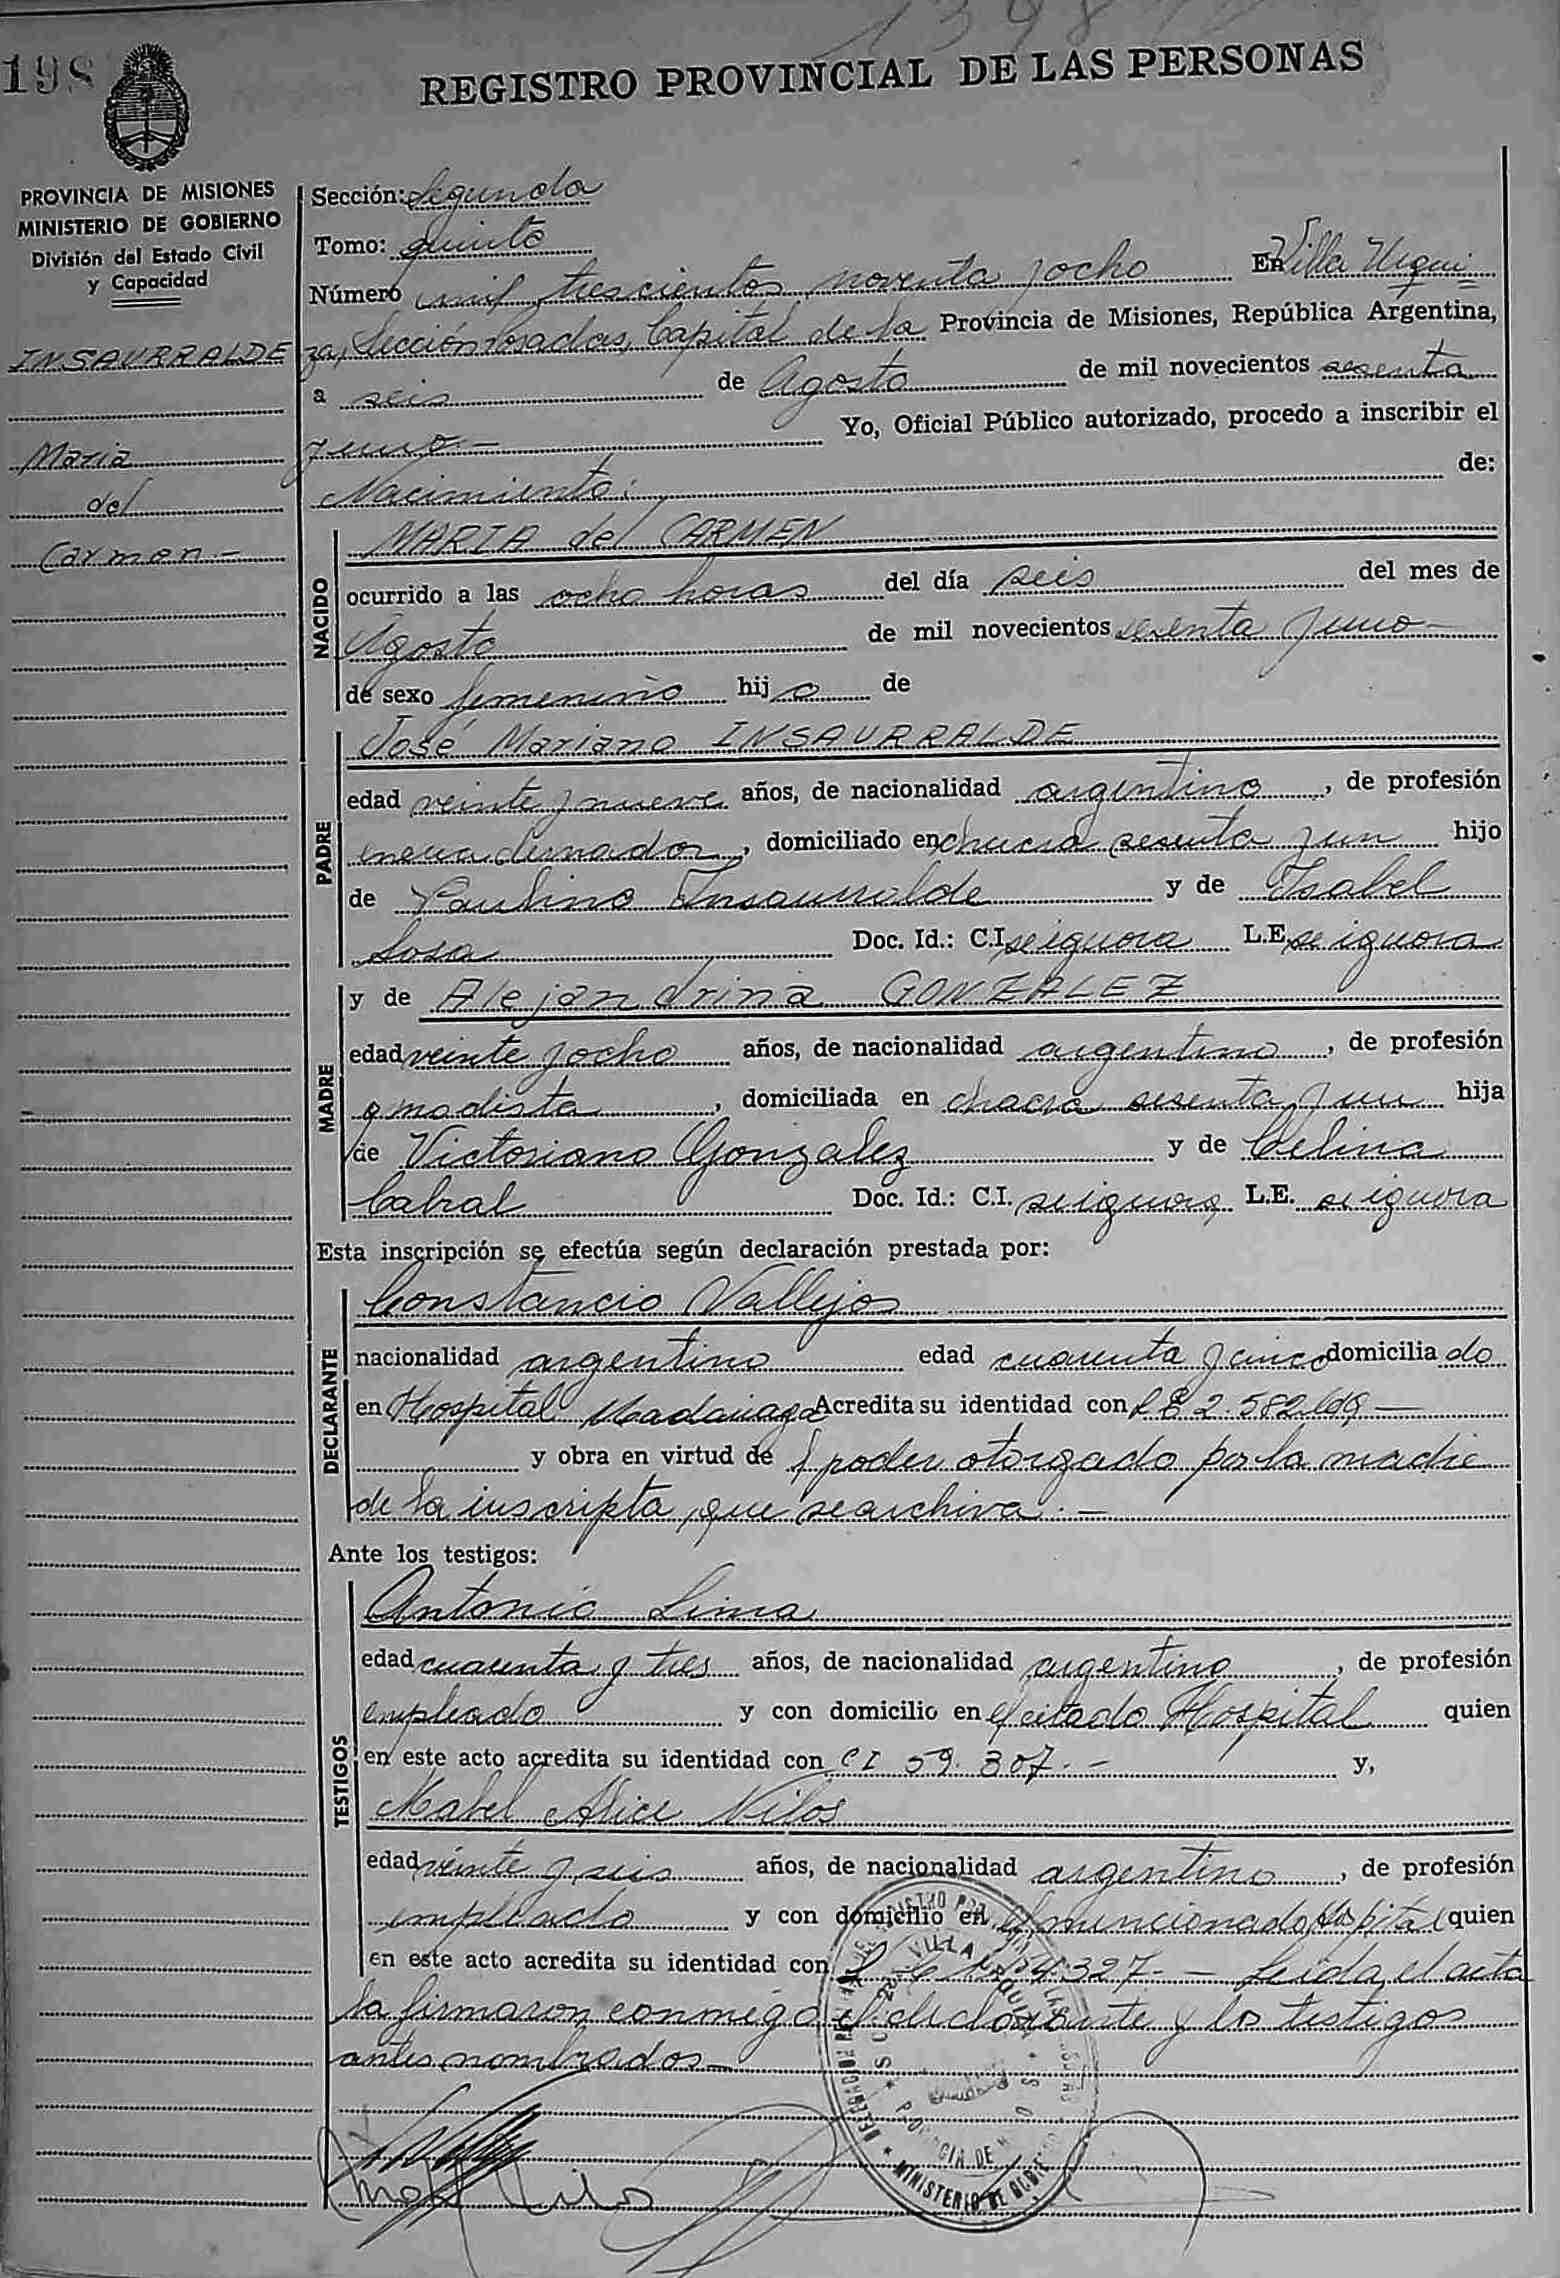 198
REGISTRO PROVINCIAL DE LAS PERSONAS
PROVINCIA DE MISIONES
MINISTERIO DE GOBIERNO
División del Estado Civil
y Capacidad
INSAURRALDE
Maria
del
Carmen.-
Sección: Segunda
Tomo: quinto
Número mil trescientos noventa y ocho En Villa Urqui
za, Sección Posadas, Capital de la Provincia de Misiones, República Argentina,
a seis de Agosto de mil novecientos sesenta
y uno - Yo, Oficial Público autorizado, procedo a inscribir el
Nacimiento: de:
NACIDO
MARIA del CARMEN
ocurrido a las ocho horas del día seis del mes de
Agosto de mil novecientos sesenta y uno -
de sexo femenino hij a de
PADRE
José Mariano INSAURRALDE
edad veinte y nueve años, de nacionalidad argentino, de profesión
encuadernador, domiciliado en chacra sesenta y un hijo
de Paulino Insaurralde y de Isabel
Sosa Doc. Id.: C.I. se ignora L.E. se ignora
MADRE
y de Alejandrina GONZALEZ
edad veinte y ocho años, de nacionalidad argentina, de profesión
modista, domiciliada en chacra sesenta y un hija
de Victoriano Gonzalez y de Celina
Cabral Doc. Id.: C.I. se ignora L.E. se ignora
Esta inscripción se efectúa según declaración prestada por:
DECLARANTE
Constancio Vallejos
nacionalidad argentino edad cuarenta y cinco domicilia do
en Hospital Madariaga Acredita su identidad con L E 2.582.619 -
y obra en virtud de poder otorgado por la madre
de la inscripta, que se archiva. -
Ante los testigos:
TESTIGOS
Antonio Lima
edad cuarenta y tres años, de nacionalidad argentino, de profesión
empleado y con domicilio en el citado Hospital quien
en este acto acredita su identidad con C I 59.307.- y,
Mabel Alice Vilos
edad veinte y seis años, de nacionalidad argentino, de profesión
empleado y con domicilio en el mencionado Hospital quien
en este acto acredita su identidad con L C 4327.- - Leída el acta
la firmaron conmigo el declarante y los testigos
antes nombrados -
VILLA URQUIZA
MINISTERIO DE GOBIERNO